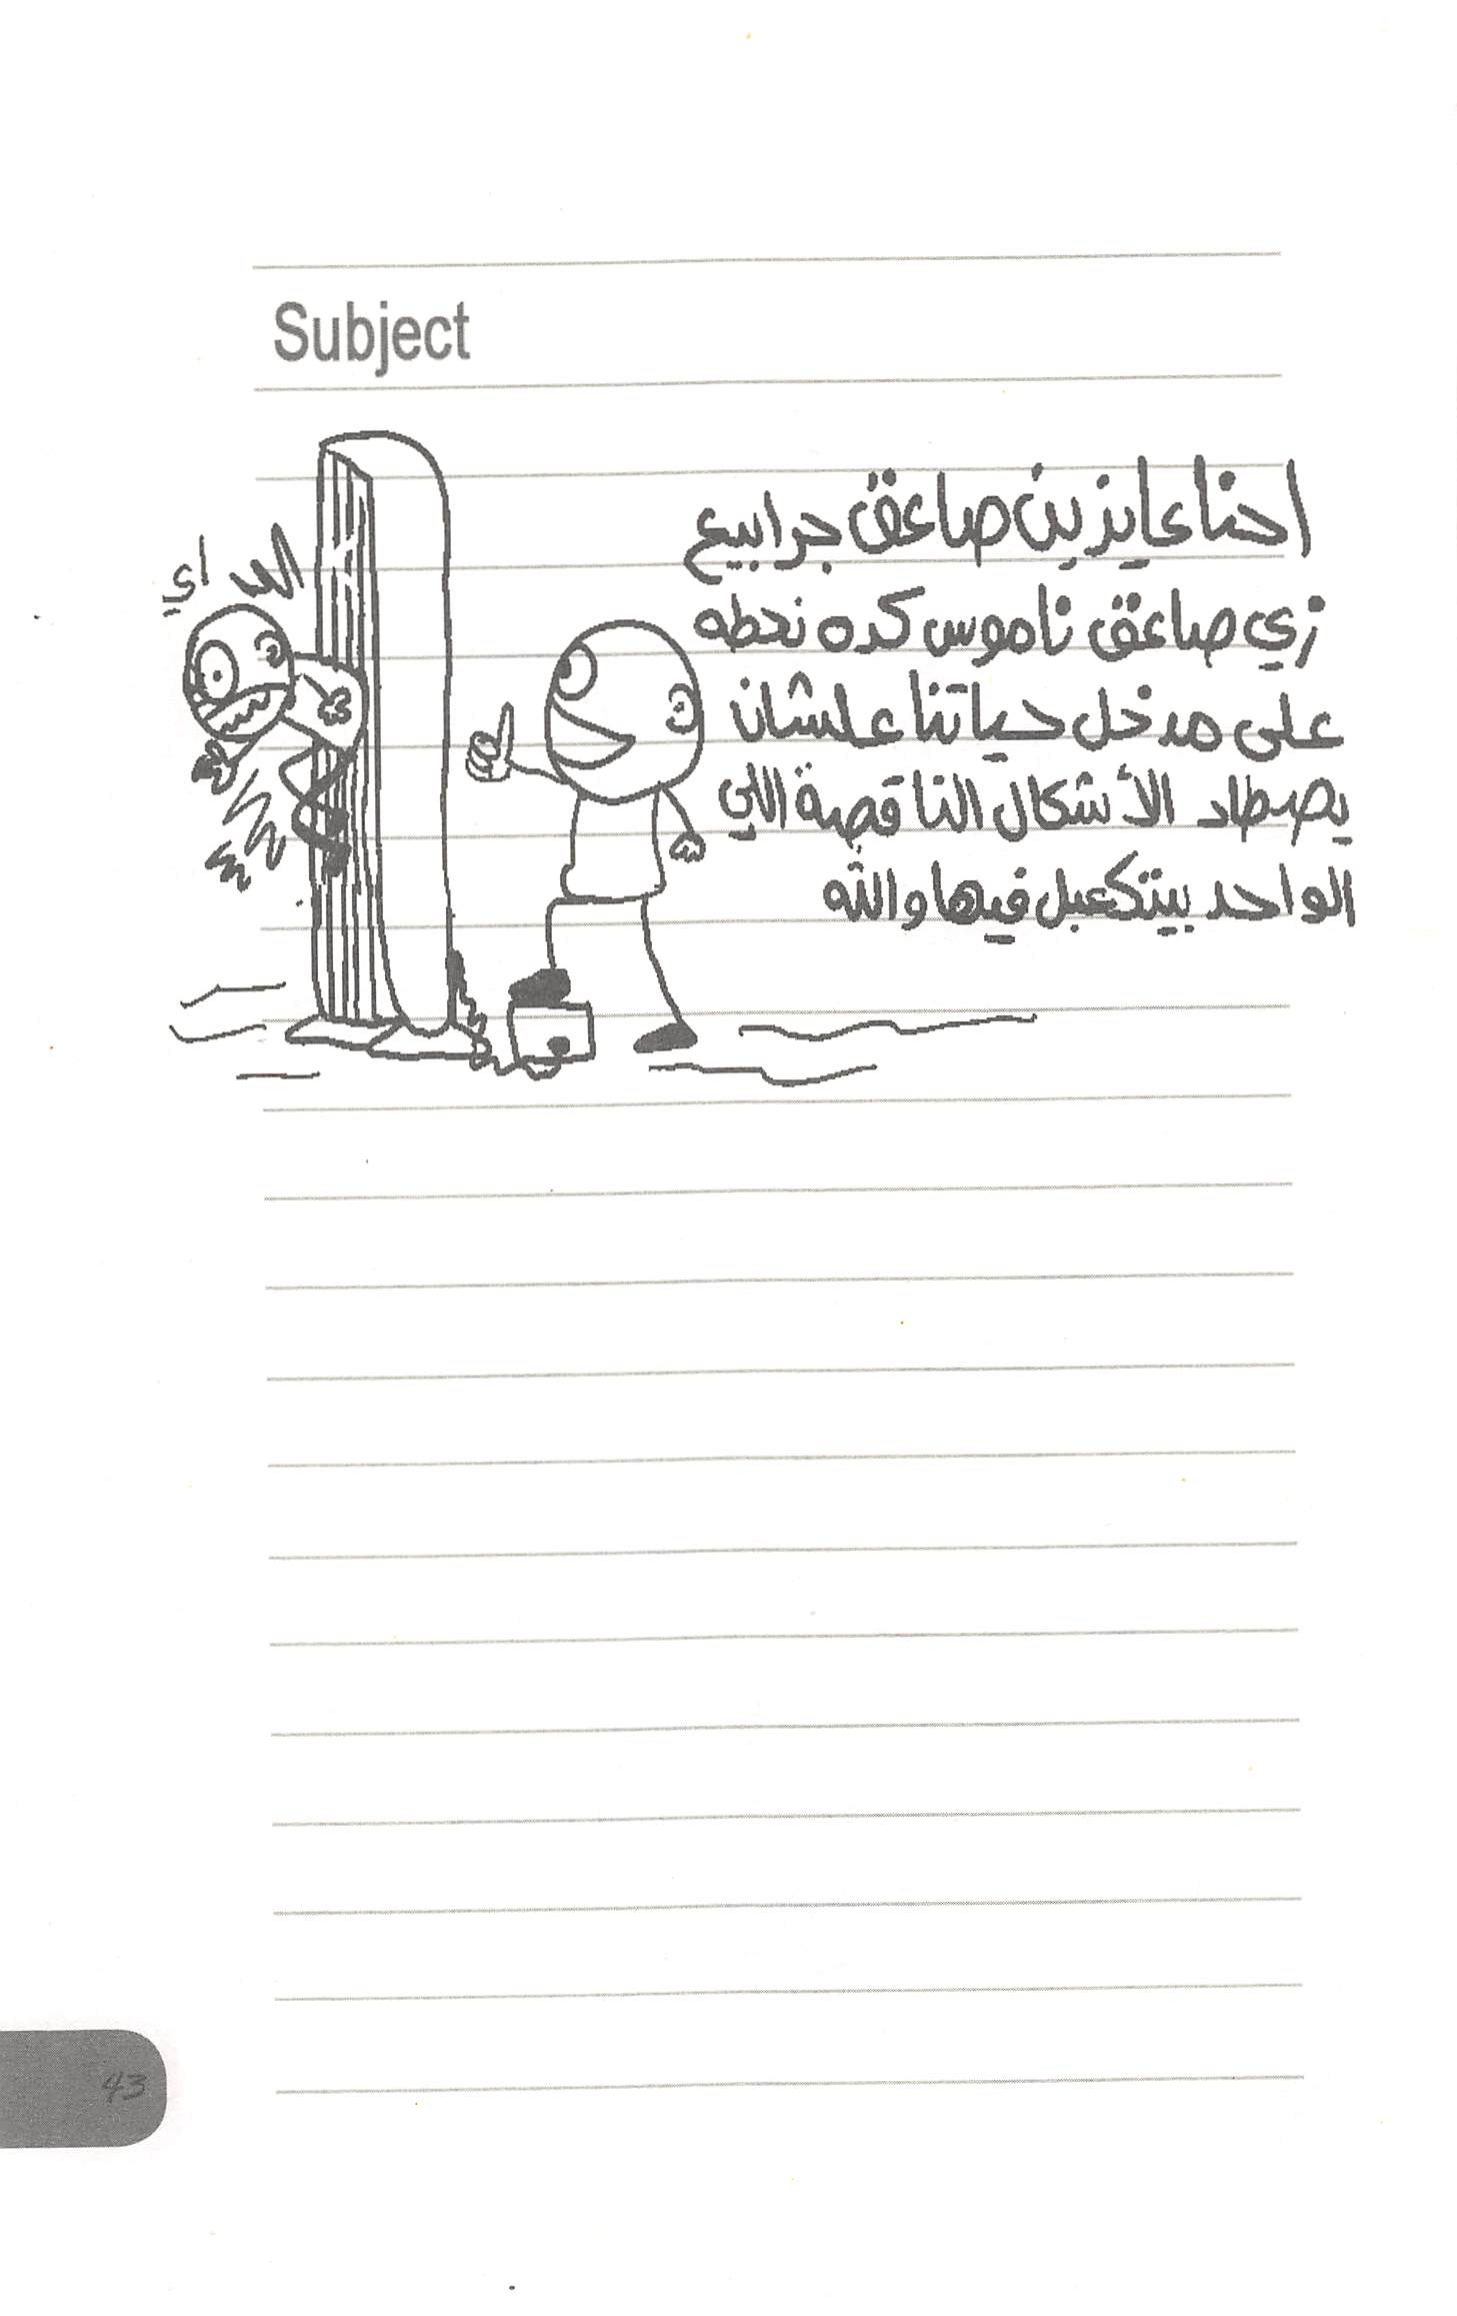 Subject
احنا عايزين صاعق جرابيع
زي صاعق ناموس كده نحطه
على مدخل حياتنا علشان
يصطاد الأشكال الناقصة اللي
الواحد بيتكعبل فيها والله
اي
43